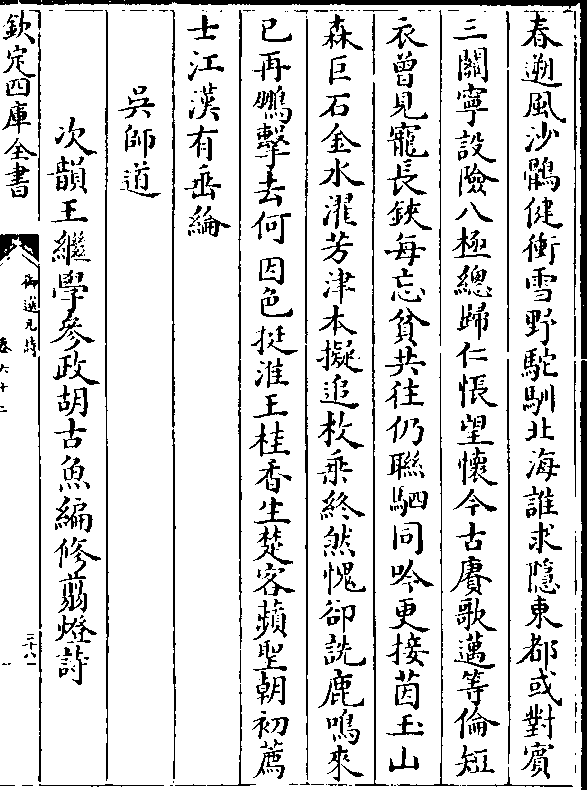 春遡風沙鶻健衝雪野駝馴北海誰求隱東都或對賓
三關寧設險八極總歸仁悵望懷今古賡歌邁等倫短
衣曾見寵長鋏每忘貧共往仍聯駟同吟更接茵玉山
森巨石金水濯芳津本擬追枚乗終然愧卻詵鹿鳴來
已再鵬擊去何因色挺淮王桂香生楚客蘋聖朝初薦
士江漢有垂綸
吳師道
次韻王繼學參政胡古魚編修翦燈詩
欽定四庫全書
御選元詩
卷六十二
三十八